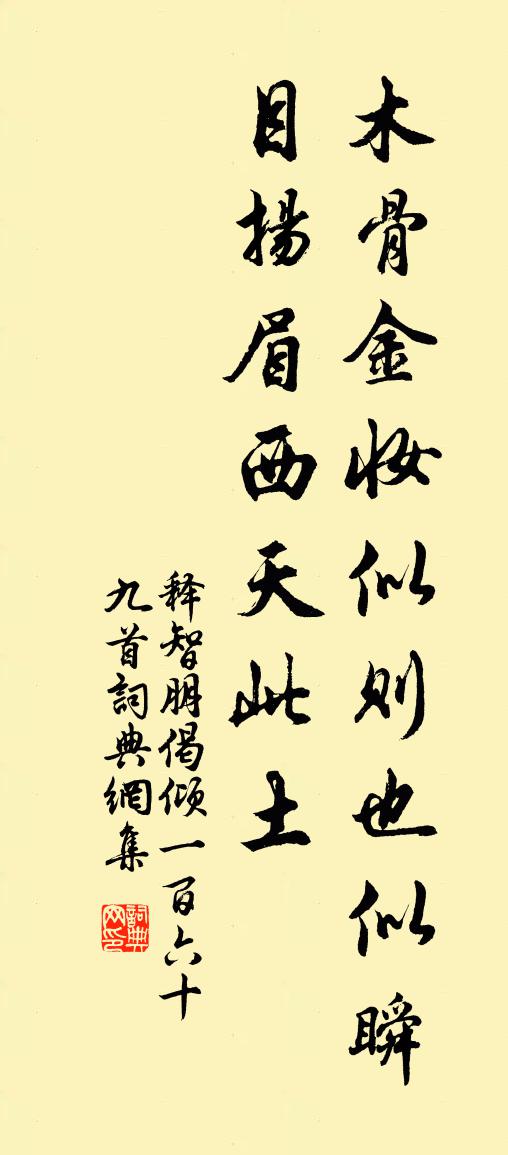 木骨金妝似则也似瞬
目揚眉西天此土
释智朋偈倾一百六十
九首詞典網集
詞典网印